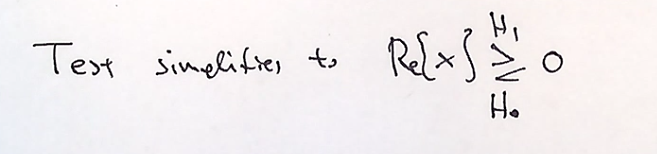 Test simplifies to Re{x} ≷ 0 H₁ H₀